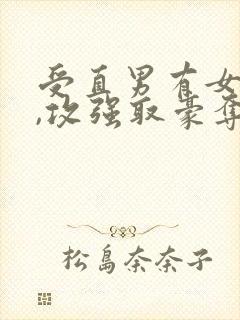 受直男有女
,攻强取豪夺
松島奈奈子